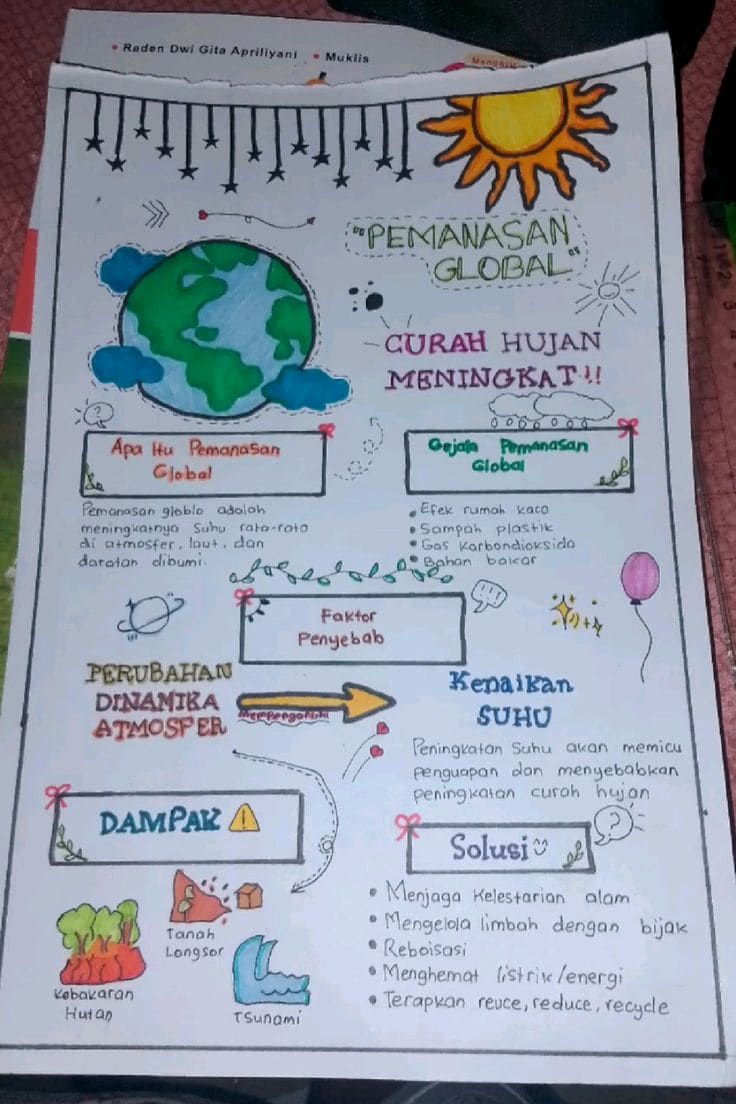 • Raden Dwi Gita Apriliyani • Muklis
"PEMANASAN
GLOBAL"
CURAH HUJAN
MENINGKAT!!
?
Apa Itu Pemanasan
Global
Pemanasan globlo adalah
meningkatnya Suhu rata-rata
di atmosfer, laut, dan
daratan dibumi.
Gejala Pemanasan
Global
• Efek rumah kaca
• Sampah plastik
• Gas karbondioksida
• Bahan bakar
Faktor
Penyebab
PERUBAHAN
DINAMIKA
ATMOSFER
mempengaruhi
Kenaikan
SUHU
Peningkatan Suhu akan memicu
penguapan dan menyebabkan
peningkatan curah hujan
DAMPAK
Tanah
Longsor
Kebakaran
Hutan
Tsunami
?
Solusi
• Menjaga Kelestarian alam
• Mengelola limbah dengan bijak
• Reboisasi
• Menghemat listrik/energi
• Terapkan reuce, reduce, recycle